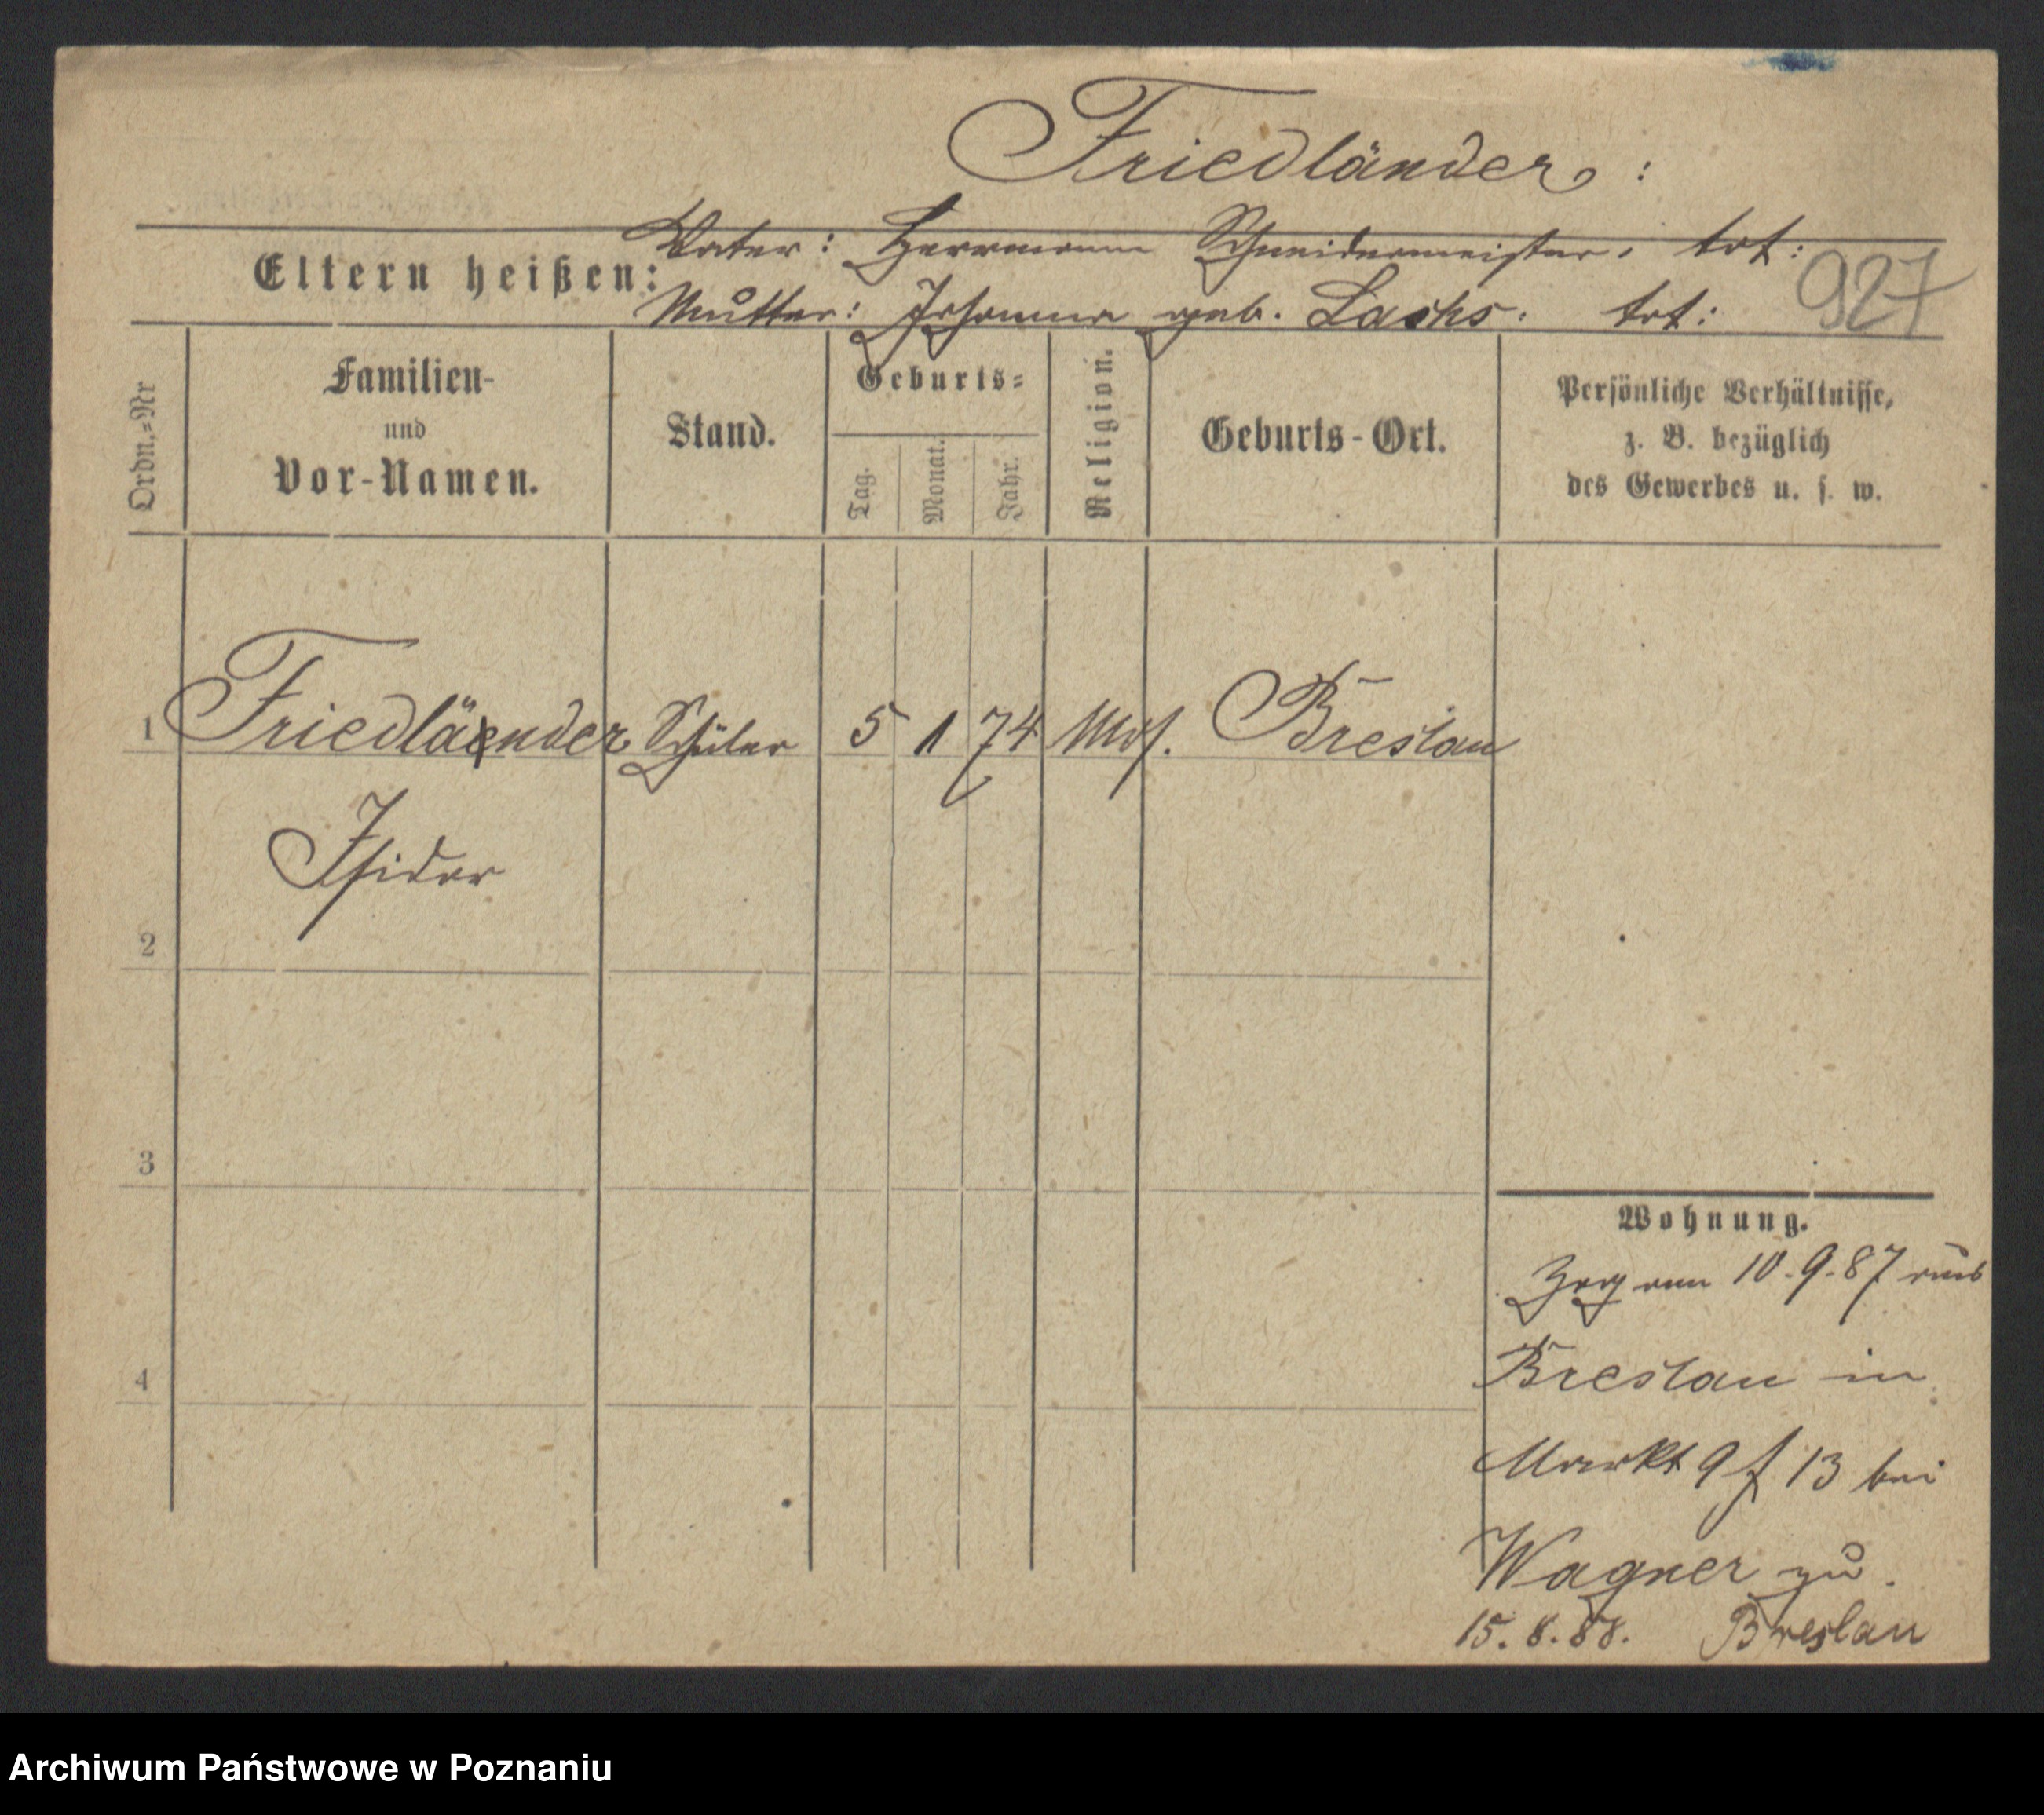 Friedländer:
Eltern heißen: Vater: Herrmann Schneidermeister, tot:
Mutter: Johanna geb. Lachs. tot: 927
Ordn.-Nr
Familien-
und
Vor-Namen.
Stand.
Geburts-
Tag. Monat. Jahr.
Religion.
Geburts-Ort.
Persönliche Verhältnisse,
z. B. bezüglich
des Gewerbes u. s. w.
1 Friedländer Schüler 5 1 74 Mos. Breslau
Isidor
2
3
4
Wohnung.
Zog am 10.9.87 aus
Breslau in
Markt 9 f 13 bei
Wagner zu.
15.8.88. Breslau
Archiwum Państwowe w Poznaniu